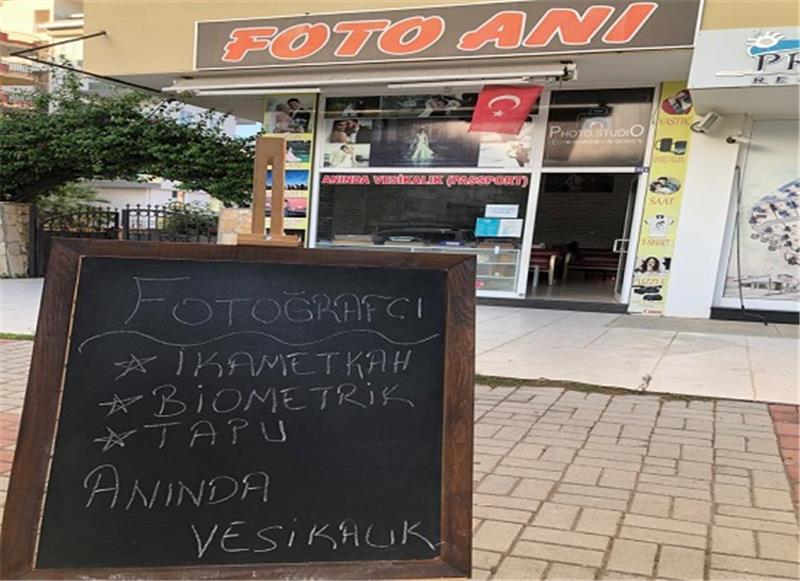 FOTO ANI
PHOTO STUDIO
ANINDA VESİKALIK (PASSPORT)
YASTIK
SAAT
T-SHIRT
PUZZLE
Canon
FOTOĞRAFCI
☆ İKAMETKAH
☆ BİOMETRİK
☆ TAPU
ANINDA
VESİKALIK